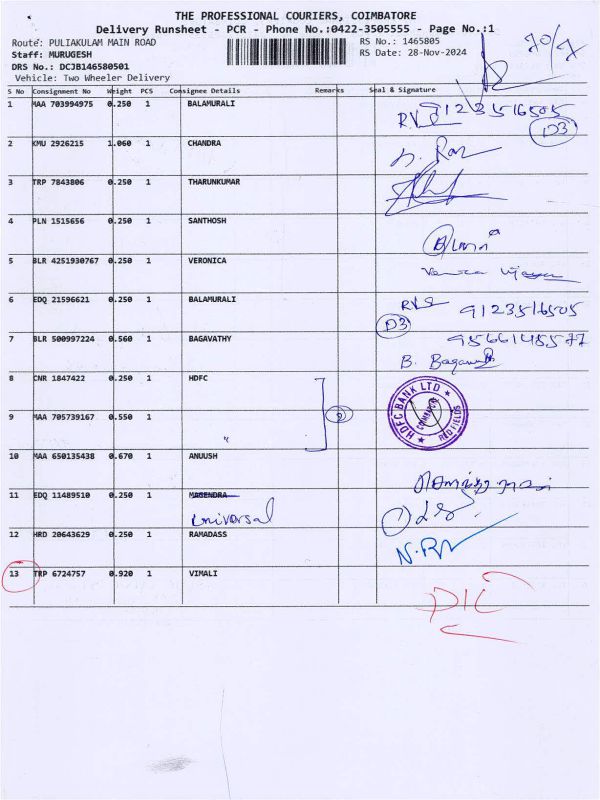 THE PROFESSIONAL COURIERS, COIMBATORE
Delivery Runsheet - PCR - Phone No.:0422-3505555 - Page No.:1
Route: PULIAKULAM MAIN ROAD RS No.: 1465805
Staff: MURUGESH RS Date: 28-Nov-2024
DRS No.: DCJB146580501
Vehicle: Two Wheeler Delivery
S No Consignment No Weight PCS Consignee Details Remarks Seal & Signature
1 MAA 703994975 0.250 1 BALAMURALI
RVS 9123516505
D3
2 KMU 2926215 1.060 1 CHANDRA
3 TRP 7843806 0.250 1 THARUNKUMAR
4 PLN 1515656 0.250 1 SANTHOSH
5 BLR 4251930767 0.250 1 VERONICA
6 EDQ 21596621 0.250 1 BALAMURALI
RVS 9123516505
D3
7 BLR 500997224 0.560 1 BAGAVATHY
9566145577
B. Bagavathy
8 CNR 1847422 0.250 1 HDFC
HDFC BANK LTD
COIMBATORE
RED FIELDS
9 MAA 705739167 0.550 1 "
2
10 MAA 650135438 0.670 1 ANUUSH
11 EDQ 11489510 0.250 1 MAGENDRA
Universal
12 HRD 20643629 0.250 1 RAMADASS
13 TRP 6724757 0.920 1 VIMALI